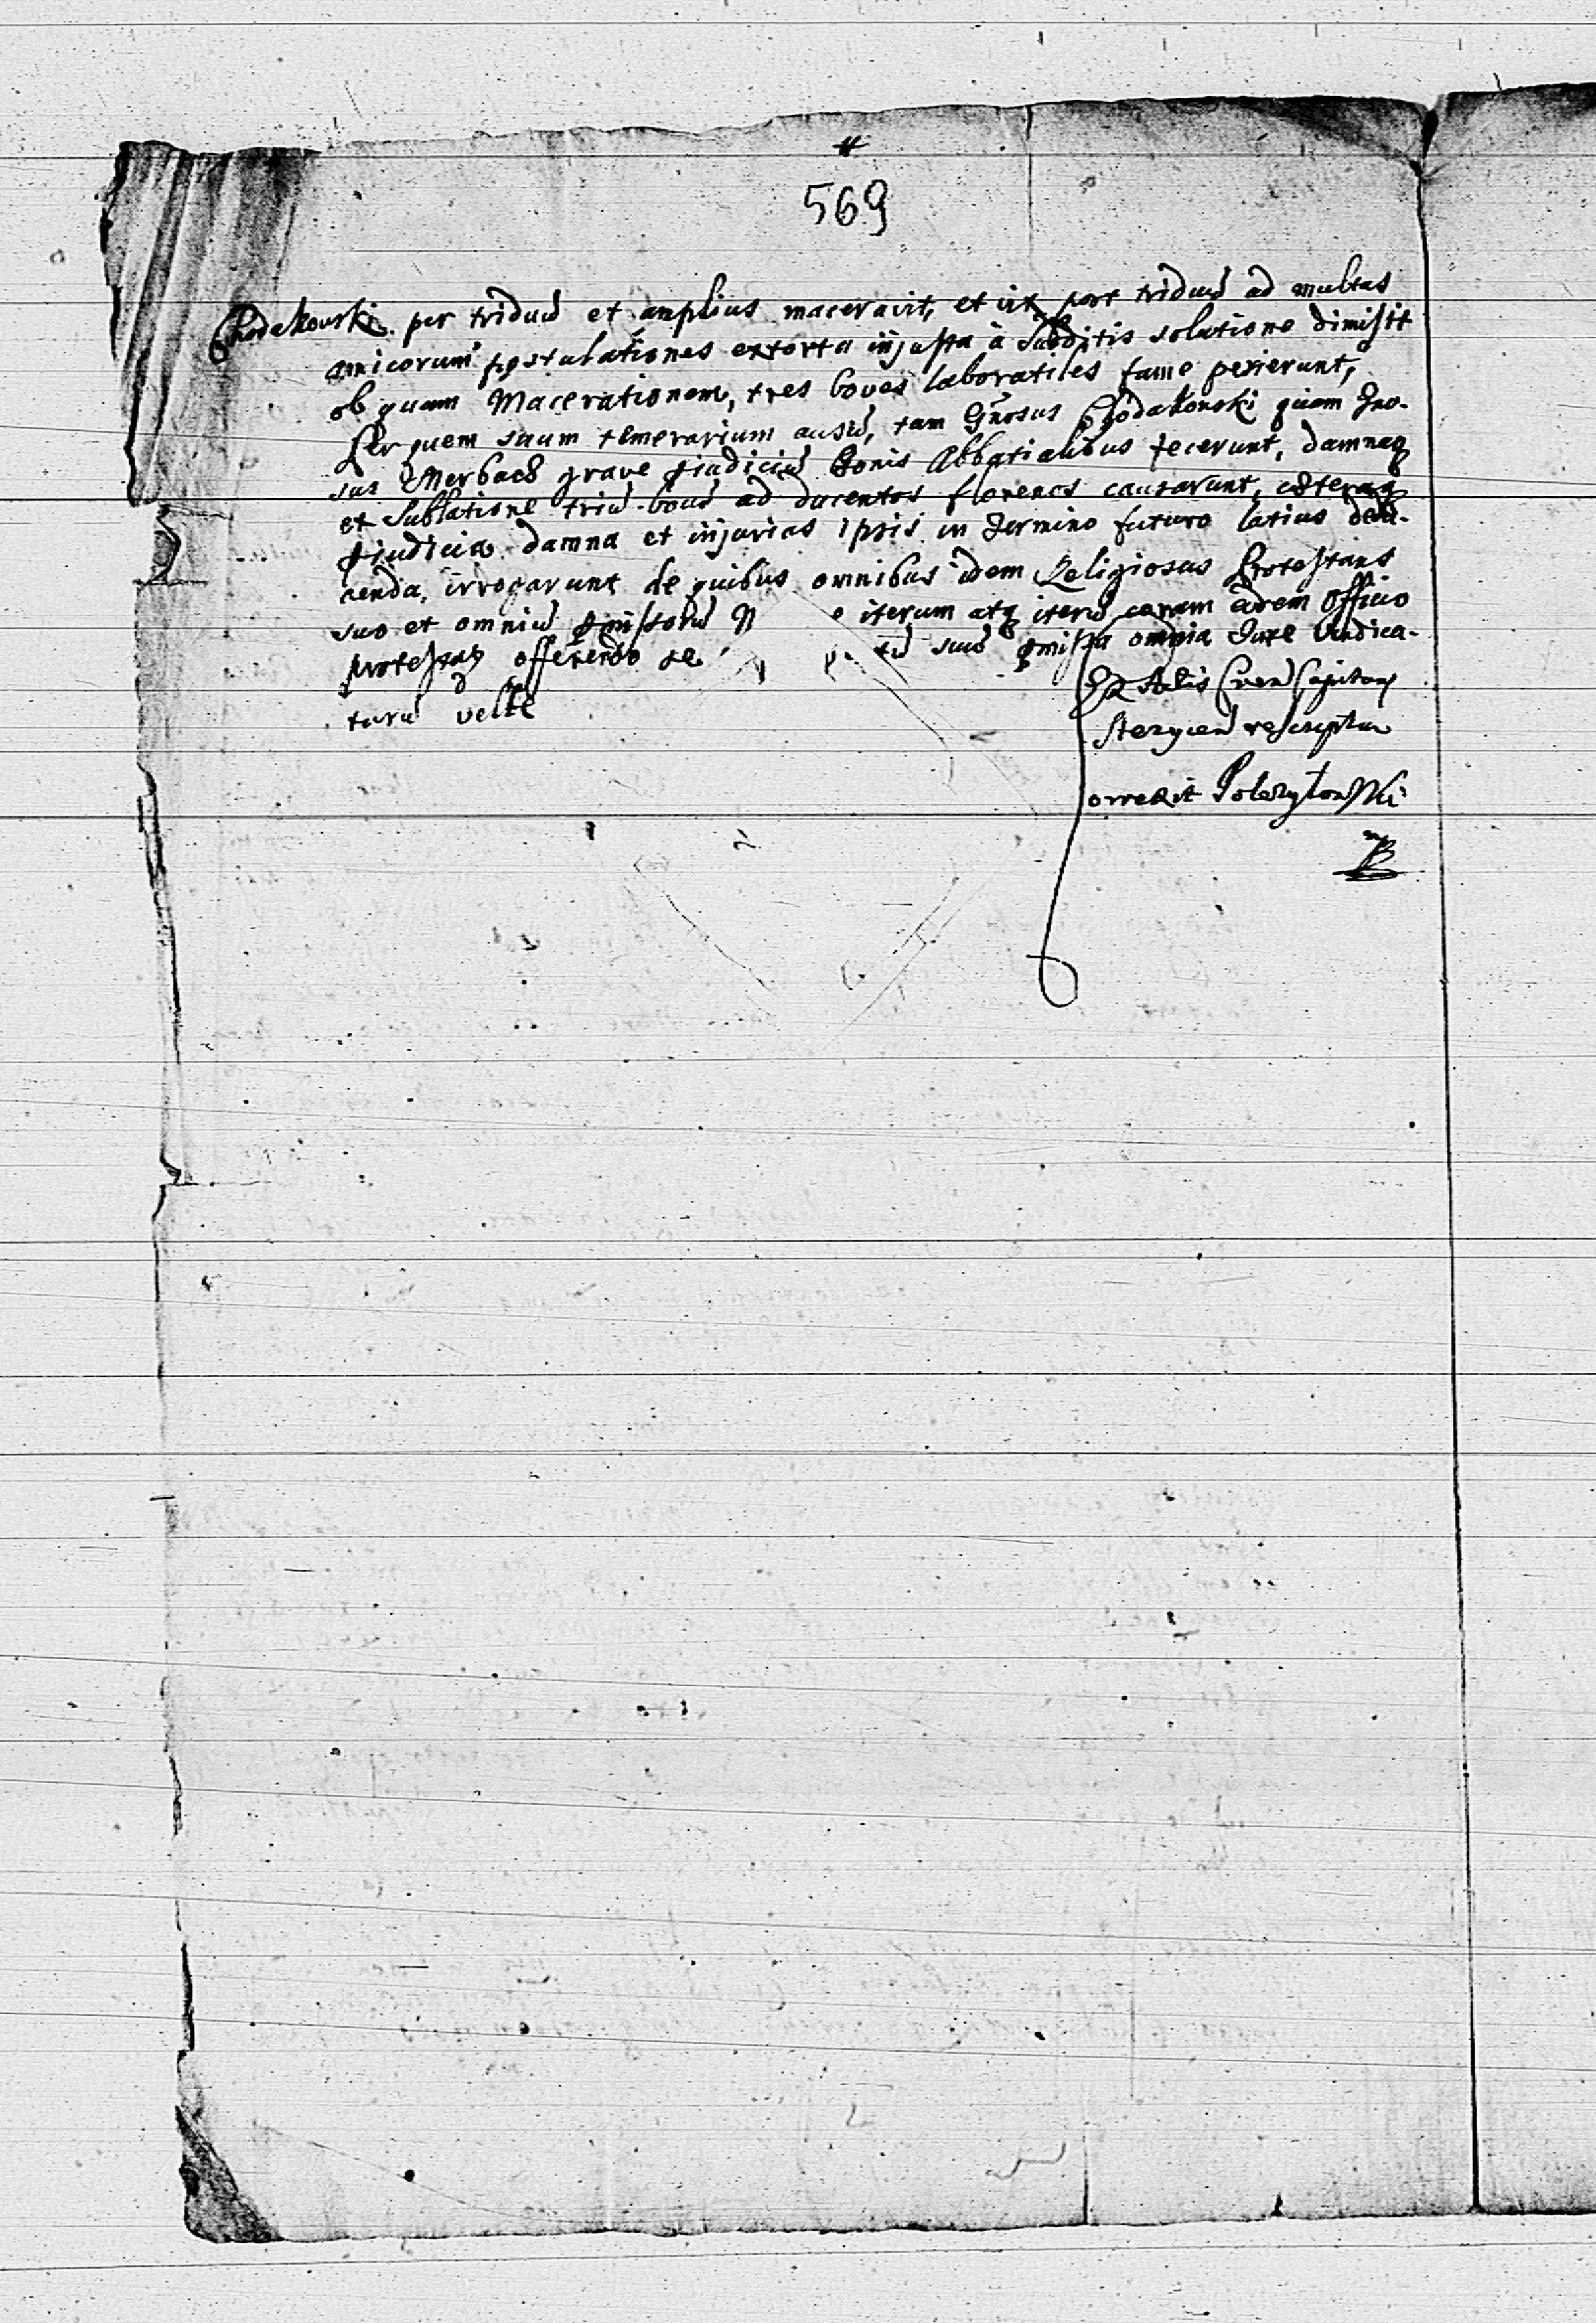 569
Chodakowski per triduũ et amplius maceravit, et vix post triduũ ad multas
amicorum postulationes extorta injusta à subditis solutione dimisit
ob quam Macerationem, tres boves laboratiles fame perierunt,
Per quem suum temerarium ausũ, tam Gnosus Chodakowski quam Gno-
sus Merbach grave pjudiciũ Bonis Abbatialibus fecerunt, damnaq
et sublatione triũ boũ ad ducentos florenos causarunt, cæteraq
pjudicia damna et injurias ipsis in Termino futuro latius dedu-
cenda, irrogarunt de quibus omnibus idem Religiosus Protestans
suo et omniũ pmissorũ n e iterum atq iterũ coram eodem Officio
protestatq offerendo se tũ suũ pmissa omnia Jure vindica-
turũ velle
Ex Actis Cren Capitan
Stezycen rescriptum
orrexit